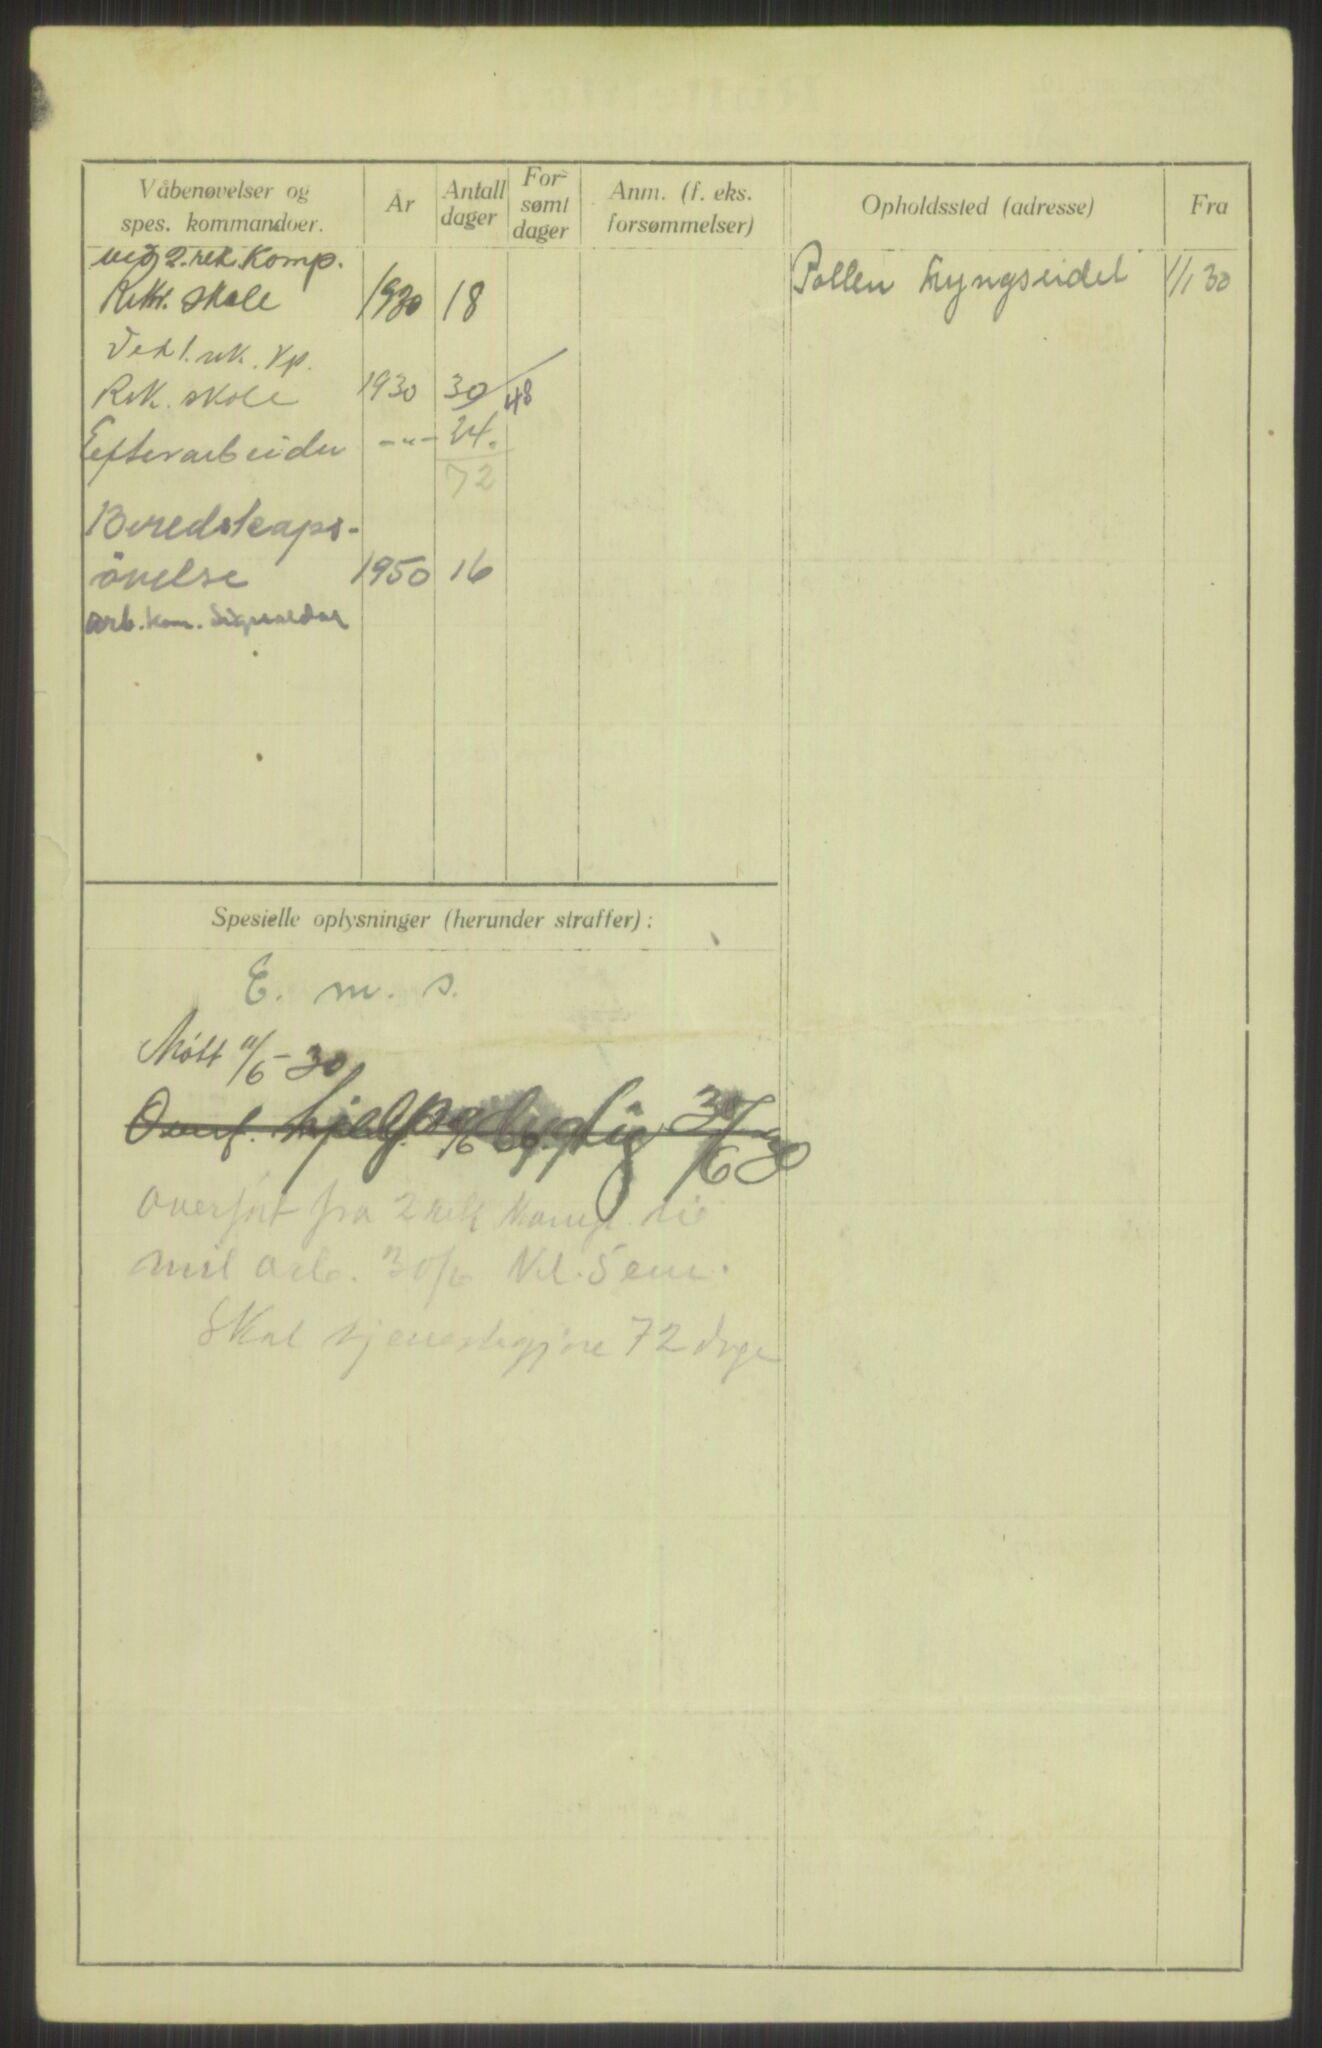 Våbenøvelser og spes. kommandoer. År Antall dager For- sømt dager Anm. (f. eks. forsømmelser) Opholdssted (adresse) Fra
ved 2. rek. Komp.
Rekr. skole 1930 18 Pollen Lyngseidet 1/1 30
Ved 1. rek. Kp.
Rek. skole 1930 30 48
Efterarbeider -"- 24.
72
Beredskaps-
övelse 1950 16
arb. kom.
Spesielle oplysninger (herunder straffer):
E. m. s.
Møtt 11/6-30
Overf. 30/6 30
Overført fra 2 rek Komp. til
mil arb. 30/6
Skal tjenestegjøre 72 dage